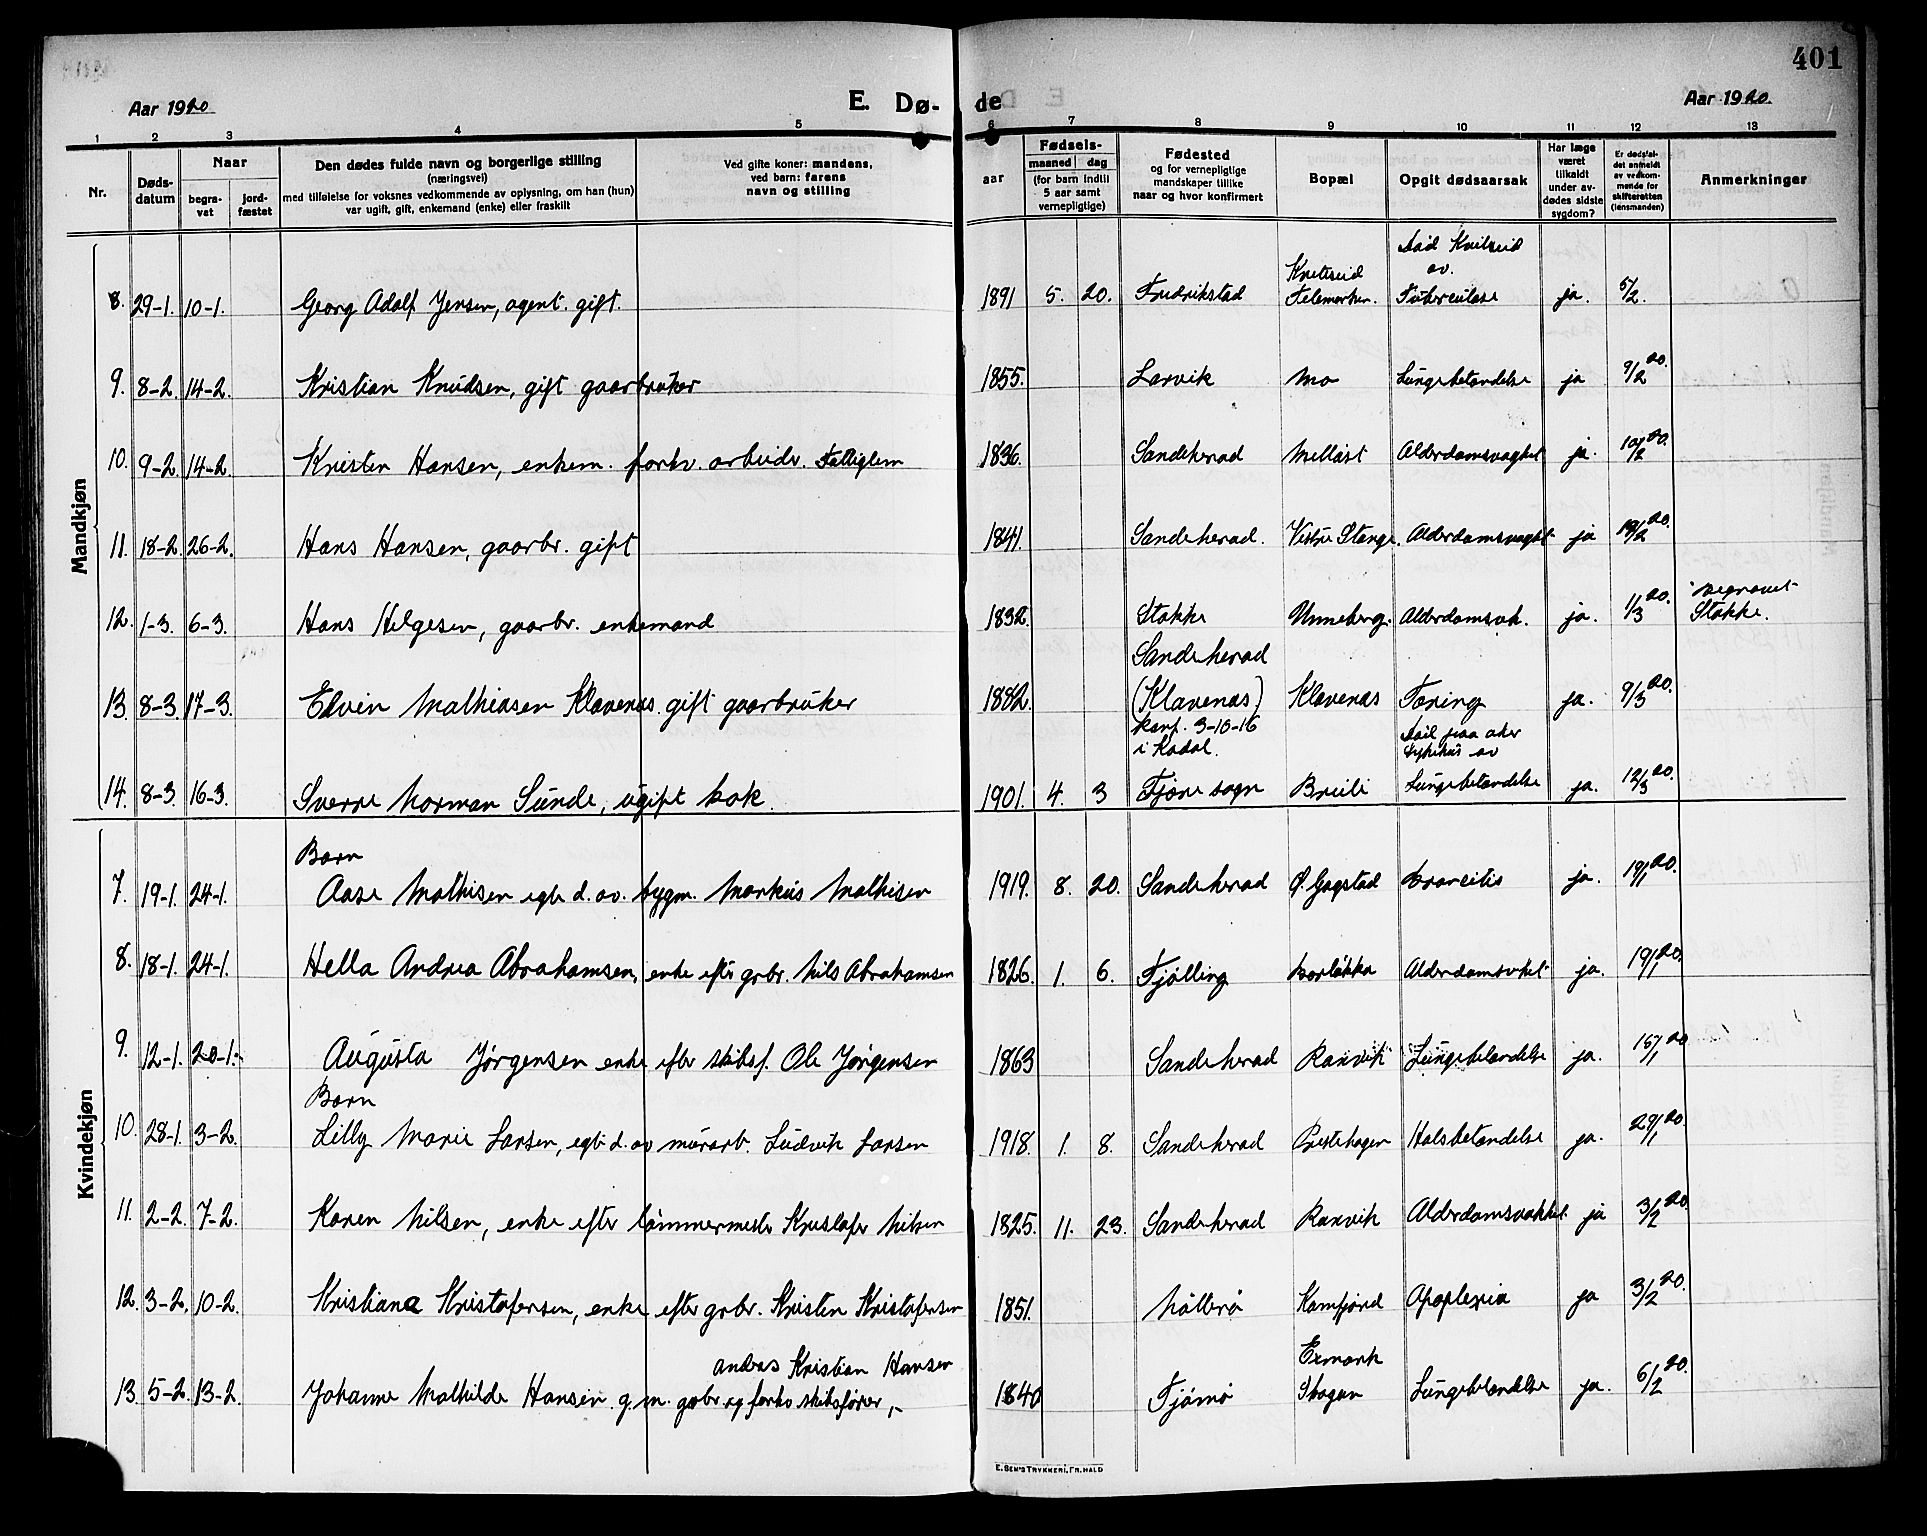 401
Aar 1920
E. Dø- de
Aar 1920.
1 2 3 4 5 6 7 8 9 10 11 12 13
Nr.
Døds-
datum
Naar
begra-
vet
jord-
fæstet
Den dødes fulde navn og borgerlige stilling
(næringsvei)
med tilføielse for voksnes vedkommende av oplysning, om han (hun)
var ugift, gift, enkemand (enke) eller fraskilt
Ved gifte koner: mandens,
ved barn: farens
navn og stilling
Fødsels-
aar
maaned dag
(for barn indtil
5 aar samt
vernepligtige)
Fødested
og for vernepligtige
mandskaper tillike
naar og hvor konfirmert
Bopæl
Opgit dødsaarsak
Har læge
været
tilkaldt
under av-
dødes sidste
sygdom?
Er dødsfal-
det anmeldt
av vedkom-
mende for
skifteretten
(lensmanden)
Anmerkninger
Mandkjøn
Død Kviteseid
Kviteseid av.
8. 29-1. 10-1. Georg Adolf Jensen, agent. gift. 1891 5. 20. Fredrikstad Telemarken. Tuberculose ja. 5/2.
9. 8-2. 14-2. Kristian Knudsen, gift gaarbruker 1855. Larvik Mo Lungebetændelse ja 9/2 20.
10. 9-2. 14-2. Kristen Hansen, enkem. forhv. arbeider. Fattiglem 1836. Sandeherad Melløst Alderdomsvaghet ja. 10/2 20.
11. 18-2. 26-2. Hans Hansen, gaarbr. gift 1841. Sandeherad. Vestre Stange. Alderdomsvaghet ja 19/2 20.
begravet
12. 1-3. 6-3. Hans Helgesen, gaarbr. enkemand 1832. Stokke Unneberg. Alderdomsvak. ja. 1/3 20. Stokke.
Sandeherad
13. 8-3. 17-3. Elvin Mathiasen Klavenæs. gift gaarbruker 1882. (Klavenæs) Klavenæs Tæring ja. 9/3 20.
konf. 3-10-16 død paa aker
i Kodal. sykehus av
14. 8-3. 16-3. Sverre Norman Sunde, ugift kok. 1901. 4. 3 Fjære sogn Breili Lungebetændelse ja. 12/3 20.
Kvindekjøn
Barn
7. 19-1. 24-1. Aase Mathisen egte d. av. bygm. Markus Mathisen 1919. 8. 20. Sandeherad Ø. Gogstad ja. 19/1 20.
8. 18-1. 24-1. Hella Andrea Abrahamsen, enke efter grbr. Nils Abrahamsen 1826. 1. 6. Fjølling Alderdomsvhet ja. 19/1 20.
9. 12-1. 20-1. Augusta Jørgensen enke efter skibsf. Ole Jørgensen 1863 Sandeherad Ranvik Lungebetændelse ja. 15/1 20
Barn
10. 28-1. 3-2. Lilly Marie Larsen, egte d. av murarb. Ludvik Larsen 1918. 1. 8. Sandeherad Prestehagen Halsbetændelse ja. 29/1 20.
11. 2-2. 7-2. Karen Nilsen, enke efter tømmermester Kristofer Nilsen 1825. 11. 23. Sandeherad Ranvik Alderdomsvakhet ja 3/2 20.
12. 3-2. 10-2. Kristiane Kristofersen, enke efter grbr. Kristen Kristofersen 1851. Nøtterø Kamfjord Apoplexia ja 3/2 20.
Andras Kristian Hansen Exmark
13. 5-2. 13-2. Johanne Mathilde Hansen g. m. grbr og forhv skibsfører, 1840 Tjømø Skogan Lungebetændelse ja. 6/2 20.
E. SEM'S TRYKKERI, FR.HALD